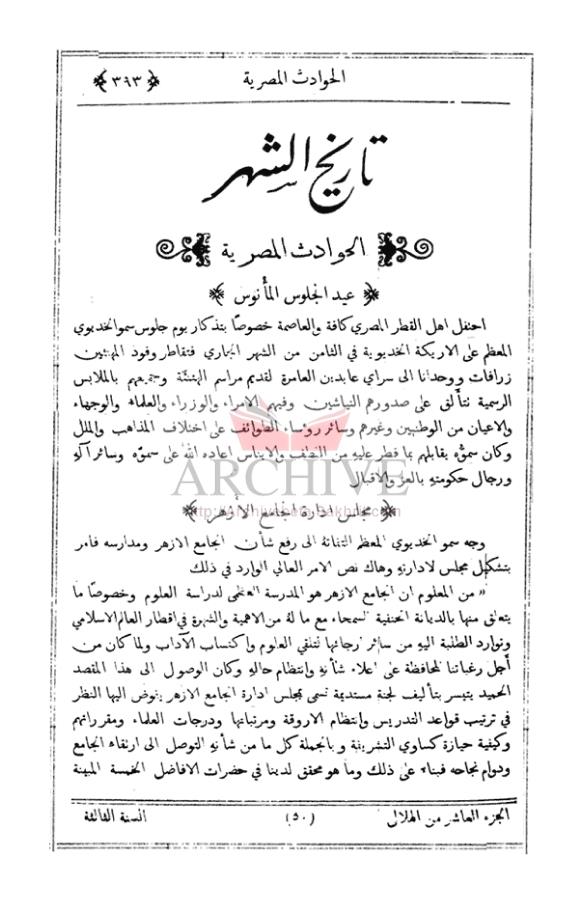 الحوادث المصرية ﴿ ٣٩٣ ﴾
تاريخ الشهر
الحوادث المصرية
﴿ عيد الجلوس المأنوس ﴾
احتفل اهل القطر المصري كافة والعاصمة خصوصًا بتذكار يوم جلوس سمو الخديوي
المعظم على الاريكة الخديوية في الثامن من الشهر الجاري فتقاطر وفود المهنئين
زرافات ووحدانا الى سراي عابدين العامرة لتقديم مراسم التهنئة وجميعهم بالملابس
الرسمية نتألق على صدورهم النياشين وفيهم الامراء والوزراء والعلماء والوجهاء
والاعيان من الوطنيين وغيرهم وسائر رؤساء الطوائف على اختلاف المذاهب والملل
وكان سموّه يقابلهم بما فطر عليهِ من اللطف والايناس اعاده الله على سموّه وسائر آلهِ
ورجال حكومتهِ بالعز والاقبال
ARCHIVE
﴿ مجلس ادارة الجامع الأزهر ﴾
وجه سمو الخديوي المعظم التفاتة الى رفع شأن الجامع الازهر ومدارسه فامر
بتشكيل مجلس لادارتهِ وهاك نص الامر العالي الوارد في ذلك
« من المعلوم ان الجامع الازهر هو المدرسة العظمى لدراسة العلوم وخصوصًا ما
يتعلق منها بالديانة الحنيفية السمحاء مع ما لهُ من الاهمية والشهرة في اقطار العالم الاسلامي
وتوارد الطلبة اليهِ من سائر ارجائها لتلقي العلوم واكتساب الآداب ولما كان من
أجل رغباتنا المحافظة على اعلاء شأنهِ وانتظام حالهِ وكان الوصول الى هذا المقصد
الحميد يتيسر بتأليف لجنة مستديمة تسمى مجلس ادارة الجامع الازهر يفوض اليها النظر
في ترتيب قواعد التدريس وانتظام الاروقة ومرتباتها ودرجات العلماء ومقرراتهم
وكيفية حيازة كساوي التشريفة وبالجملة كل ما من شأنهِ التوصل الى ارتقاء الجامع
ودوام نجاحه فبناء على ذلك وما هو محقق لدينا في حضرات الافاضل الخمسة المبينة
الجزء العاشر من الهلال (٥٠) السنة الثالثة